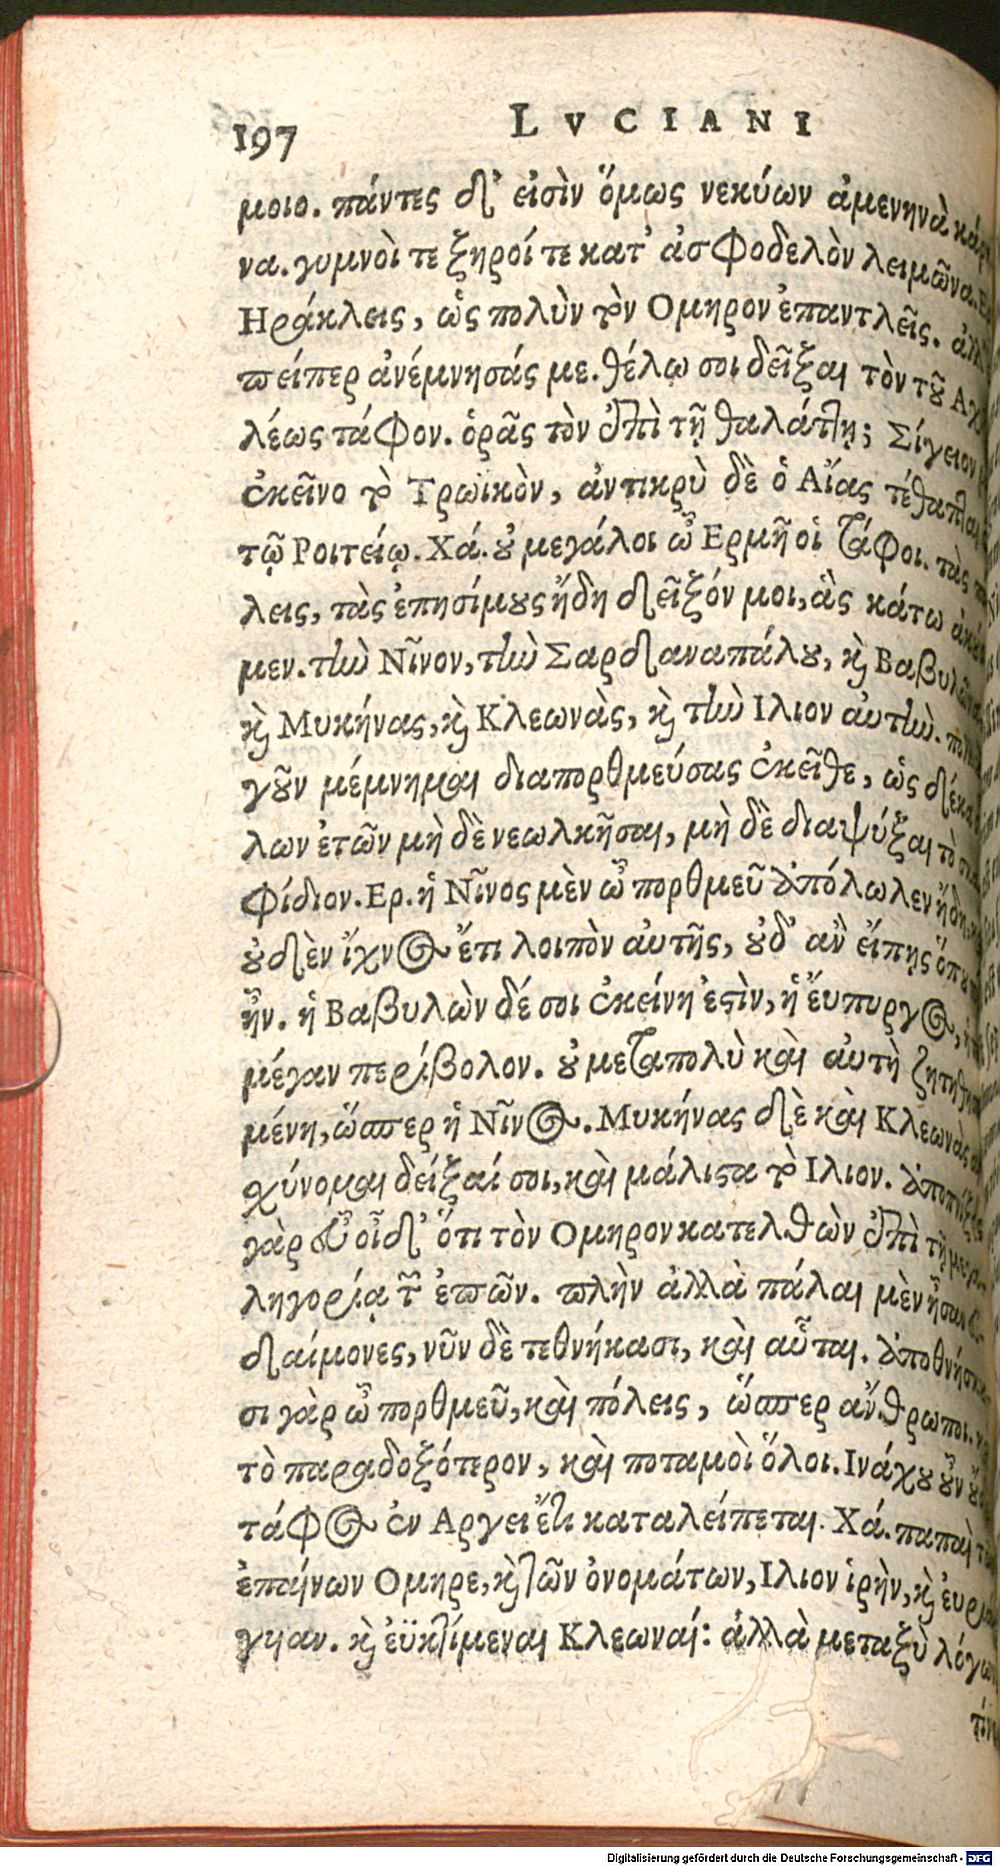 197 LVCIANI
μοιο. πάντες δ' εἰσὶν ὅμως νεκύων ἀμενηνὰ
να. γυμνοὶ τε ξηροί τε κατ' ἀσφοδελὸν λειμῶνα.
Ηράκλεις, ὡς πολὺν τὸν Ομηρον ἐπαντλεῖς.
πείπερ ἀνέμνησάς με. θέλω σοι δεῖξαι τὸν τοῦ
λέως τάφον. ὁρᾶς τὸν ἐπὶ τῇ θαλάττῃ; Σίγειον
ἐκεῖνο τὸ Τρωϊκὸν, ἀντικρὺ δὲ ὁ Αἴας τέθαπται
τῷ Ροιτείῳ. Χά. οὐ μεγάλοι ὦ Ερμῆ οἱ τάφοι. τὰς
λεις, τὰς ἐπησίμους ἤδη δεῖξόν μοι, ἃς κάτω
μεν. τὴν Νῖνον, τὴν Σαρδαναπάλου, καὶ
καὶ Μυκήνας, καὶ Κλεωνὰς, καὶ τὴν Ιλιον αὐτὴν.
γοῦν μέμνημαι διαπορθμεύσας ἐκεῖθε, ὡς
λων ἐτῶν μὴ δὲ νεωλκῆσαι, μὴ δὲ διαψύξαι τὸ
φίδιον. Ερ. ἡ Νῖνος μὲν ὦ πορθμεῦ ἀπόλωλεν ἤδη,
οὐδὲν ἴχνος ἔτι λοιπὸν αὐτῆς, οὐδ' ἂν εἴπῃς
ἦν. ἡ Βαβυλὼν δέ σοι ἐκείνη ἐστὶν, ἡ εὔπυργος,
μέγαν περίβολον. οὐ μεταπολὺ καὶ αὐτὴ
μένη, ὥσπερ ἡ Νῖνος. Μυκήνας δὲ καὶ Κλεωνὰς
χύνομαι δεῖξαί σοι, καὶ μάλιστα τὸ Ιλιον.
γὰρ εὖ οἶδ' ὅτι τὸν Ομηρον κατελθὼν ἐπὶ τῇ
ληγορίᾳ τῶν ἐπῶν. πλὴν ἀλλὰ πάλαι μὲν ἦσαν
δαίμονες, νῦν δὲ τεθνήκασι, καὶ αὗται.
σι γὰρ ὦ πορθμεῦ, καὶ πόλεις, ὥσπερ ἄνθρωποι.
τὸ παραδοξότερον, καὶ ποταμοὶ ὅλοι. Ινάχου οὖν
τάφος ἐν Αργει ἔτι καταλείπεται. Χά. παπαὶ
ἐπαίνων Ομηρε, καὶ τῶν ὀνομάτων, Ιλιον ἱρὴν, καὶ
γυιαν. καὶ ἐϋκτίμεναι Κλεωναί: ἀλλὰ μεταξὺ
Digitalisierung gefördert durch die Deutsche Forschungsgemeinschaft - DFG